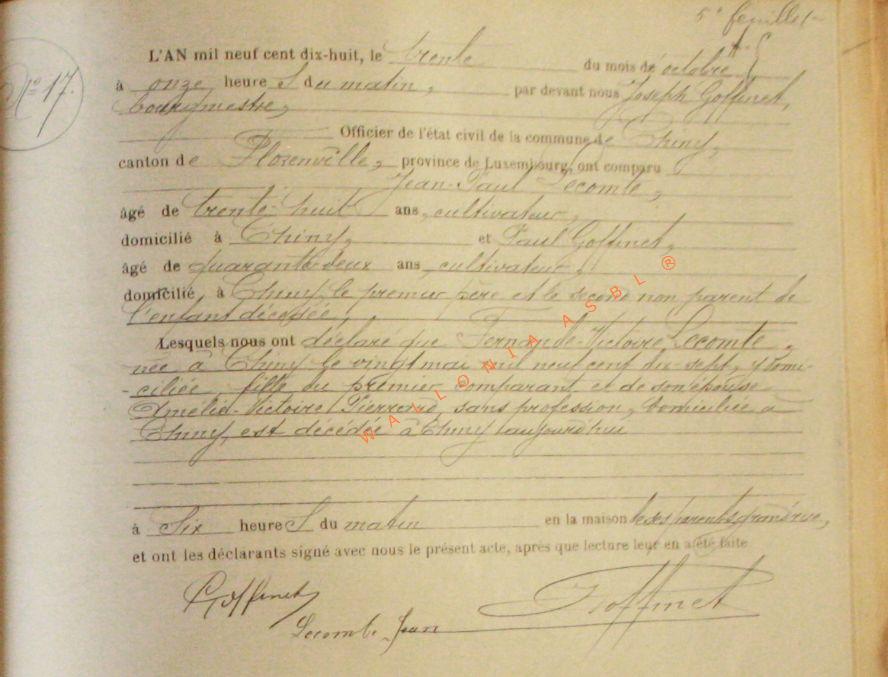 5e feuillet
No 17.
L'AN mil neuf cent dix-huit, le trente du mois de octobre
à onze heures du matin, par devant nous Joseph Goffinet,
bourgmestre,
Officier de l'état civil de la commune de Chiny,
canton de Florenville, province de Luxembourg, ont comparu
Jean-Paul Lecomte,
âgé de trente-huit ans, cultivateur,
domicilié à Chiny, et Paul Goffinet,
âgé de quarante-deux ans cultivateur,
domicilié à Chiny, le premier père et le second non parent de
l'enfant décédée,
Lesquels nous ont déclaré que Fernande-Victoire Lecomte,
née à Chiny le vingt mai mil neuf cent dix-sept, y domi-
-ciliée, fille du premier comparant et de son épouse
Amélie-Victoire Pierrard, sans profession, domiciliée à
Chiny, est décédée à Chiny aujourd'hui
à six heures du matin en la maison de ses parents,
et ont les déclarants signé avec nous le présent acte, après que lecture leur en a été faite
Goffinet
Lecomte Jean
Goffinet
WALLONIA ASBL ®